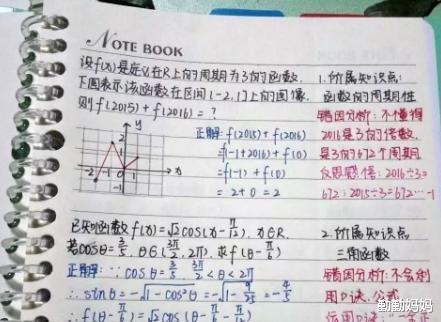 NOTE BOOK
设f(x)是定义在R上的周期为3的函数,
下图表示该函数在区间[-2,1]上的图像,
则f(2015)+f(2016)=?
y
2
1
-2 -1 0 1 x
-1
正解: f(2015)+f(2016)
=f(-1+2016)+f(0)
=f(-1)+f(0)
=2+0=2
1.所属知识点:
函数的周期性
错因分析:不懂得
2016是3的倍数,
是3的672个周期
反思感悟:2016÷3=
672;2015÷3=672…-1
已知函数f(x)=√2cos(x-π/12),x∈R.
若cosθ=3/5,θ∈(3π/2,2π),求f(θ-π/6)
正解:∵cosθ=3/5,3π/2<θ<2π
∴sinθ=-√1-cos²θ=-√1-9/25=-4/5
∴f(θ-π/6)=√2cos(θ-π/6-π/12)
2.所属知识点
三角函数
错因分析:不会利
用口诀,公式
勤勤妈妈